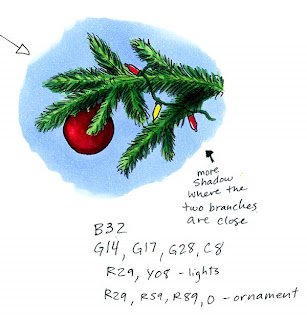 more
shadow
where the
two branches
are close
B32
G14, G17, G28, C8
R29, Y08 - lights
R29, R59, R89, 0 - ornament